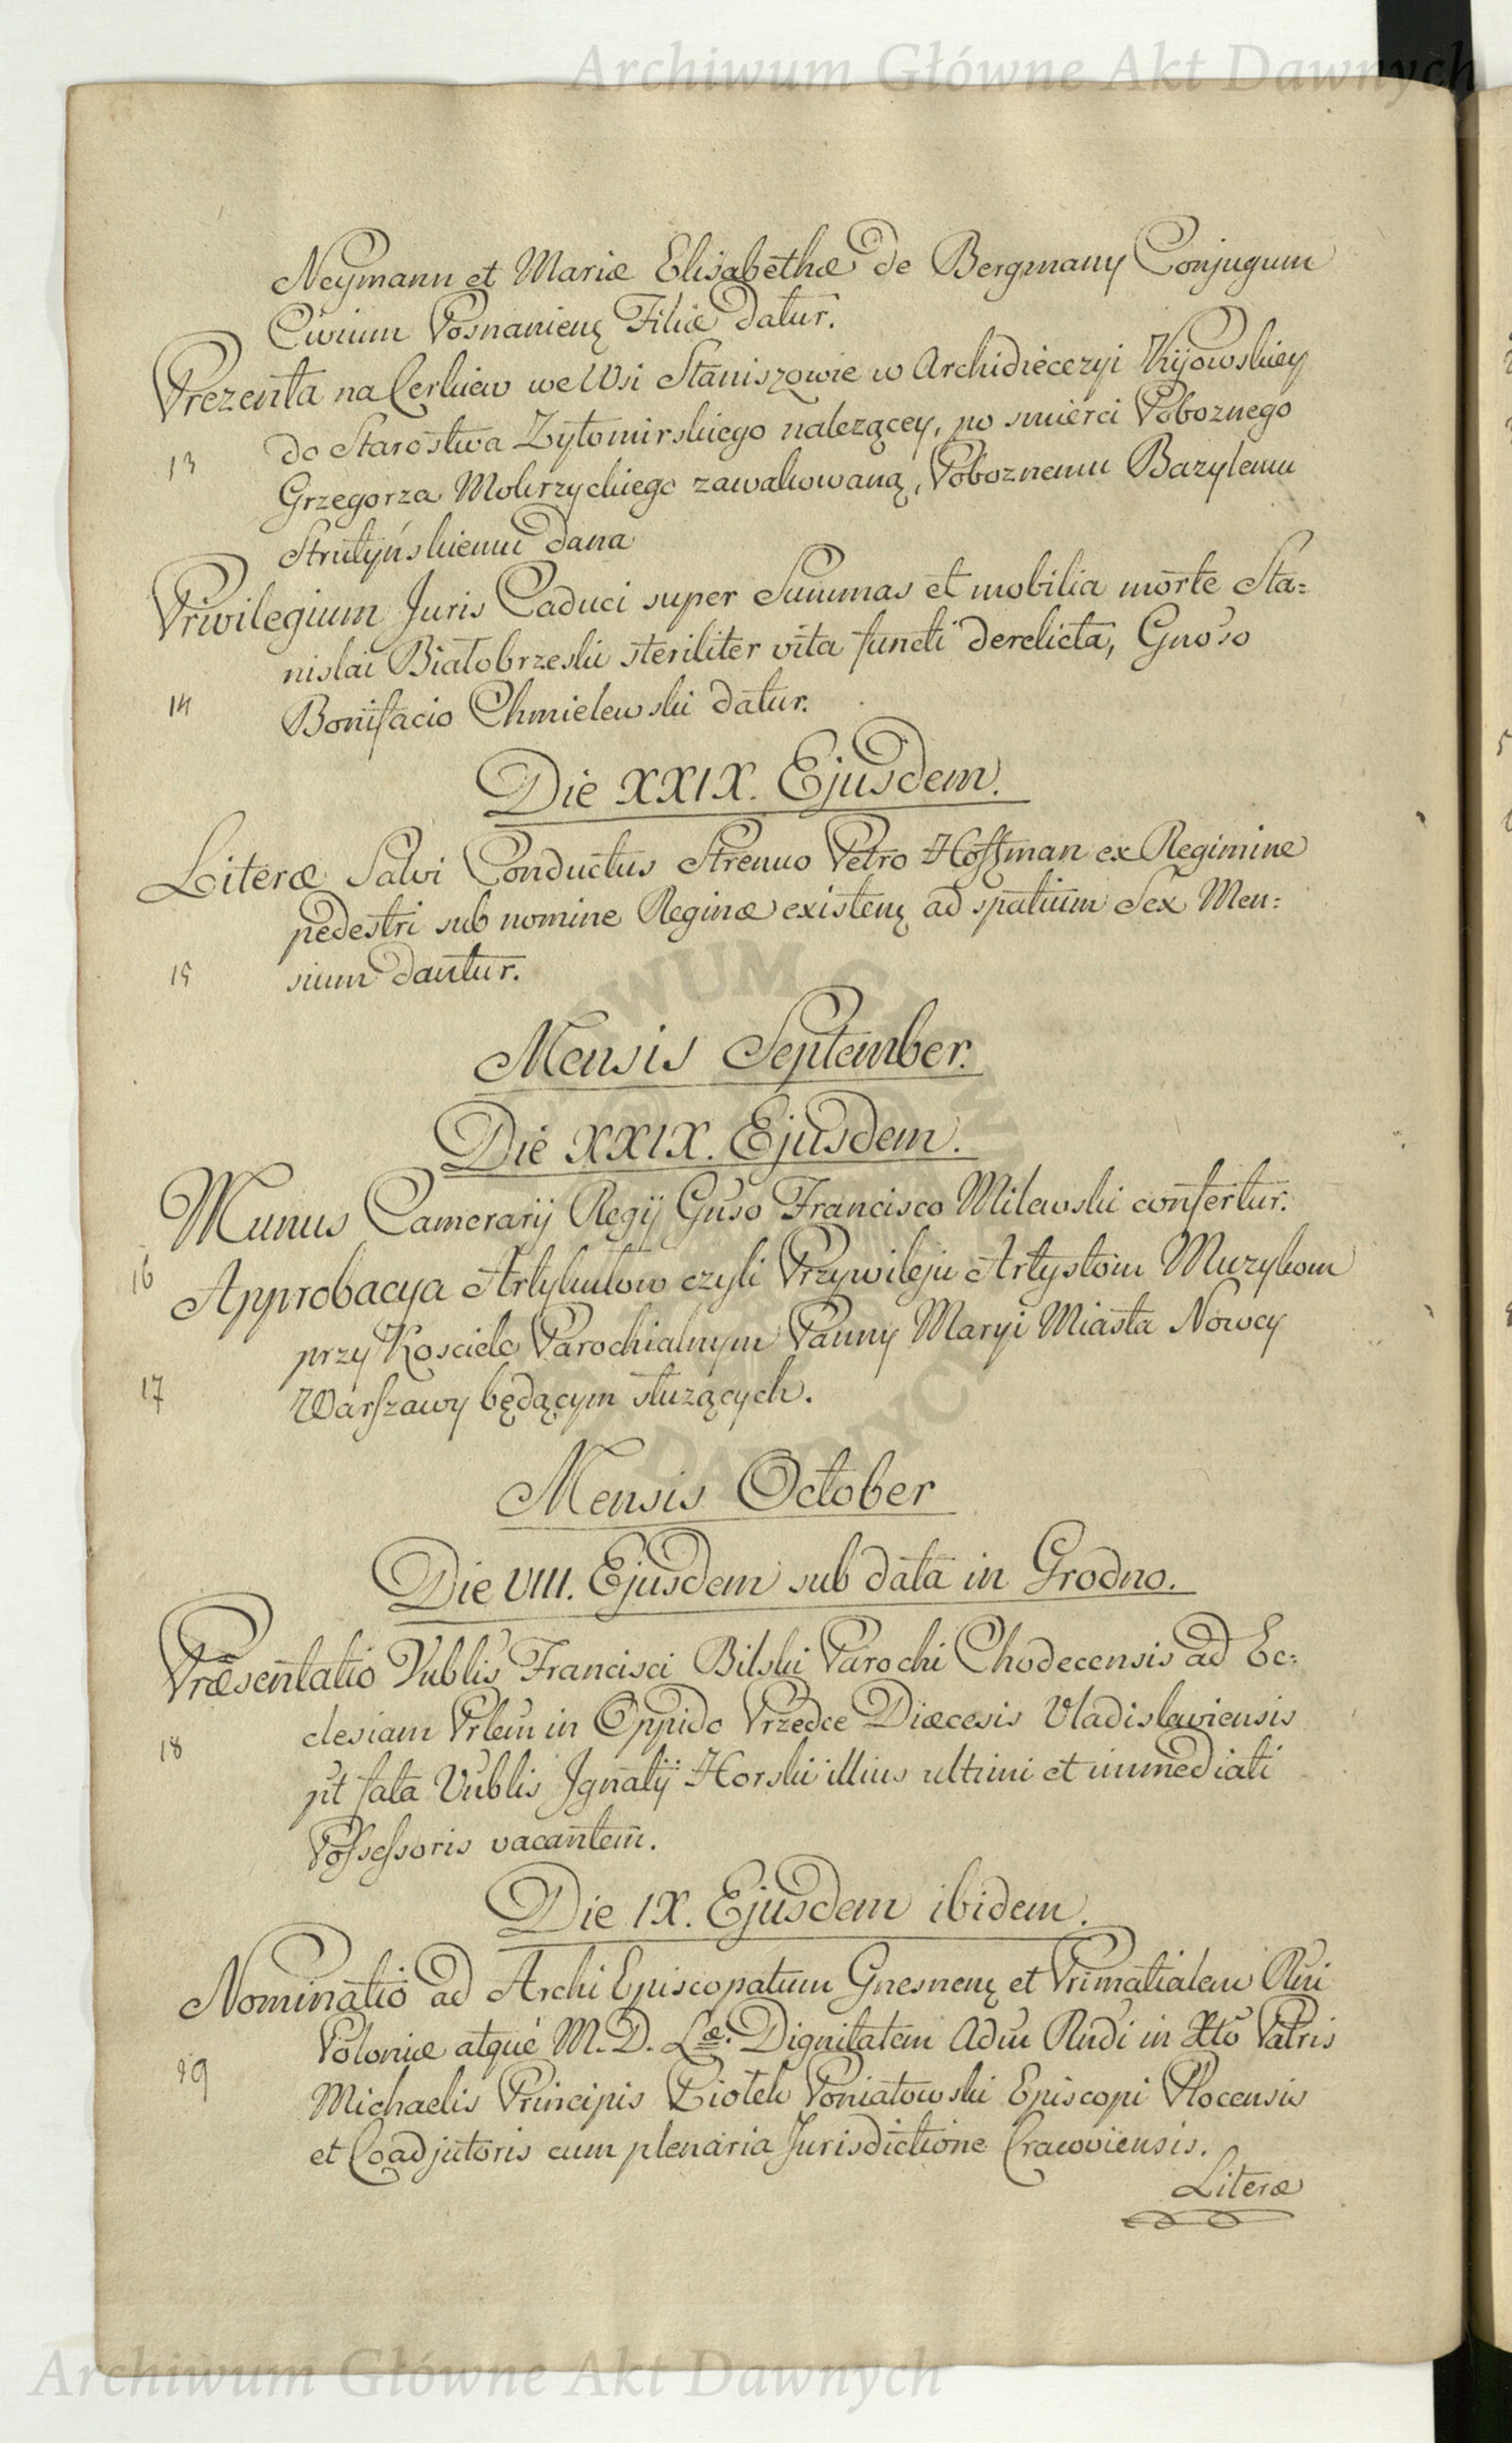 Archiwum Główne Akt Dawnych
Neymann et Mariæ Elisabethæ de Bergmany Conjugum
Civium Posnanienȝ Filiæ datur.
Prezenta na Cerkiew we Wsi Staniszowie w Archidiecezyi Kijowskiey
do Starostwa Zytomirskiego nalezącey, po smierci Poboznego
13
Grzegorza Mokrzyckiego zawakowaną, Poboznemu Bazylemu
Strutyńskiemu dana
Privilegium Juris Caduci super Summas et mobilia morte Sta=
nislai Białobrzeski steriliter vita functi derelicta, Gnoso
14
Bonifacio Chmielewski datur.
Die XXIX. Ejusdem.
Literæ Salvi Conductus Strenuo Petro Hoffman ex Regimine
pedestri sub nomine Reginæ existenȝ ad spatium Sex Men:
15
sium dantur.
Mensis September.
Die XXIX. Ejusdem.
Munus Camerarij Regij Gnso Francisco Milewski confertur.
16
Approbacya Artykułow czyli Przywileju Artystom Muzykom
przy Kosciele Parochialnym Panny Maryi Miasta Nowey
17
Warszawy będącym służących.
Mensis October
Die VIII. Ejusdem sub data in Grodno.
Præsentatio Vublis Francisci Bilski Parochi Chodecensis ad Ec:
clesiam Prlem in Oppido Przedce Diæcesis Vladislaviensis
18
pt fata Vublis Ignatij Horski illius ultimi et immediati
Possessoris vacantem.
Die IX. Ejusdem ibidem.
Nominatio ad Archi Episcopatum Gnesnenȝ et Primatialem Rni
Poloniæ atque M. D. Læ. Dignitatem Adm Rndi in Xto Patris
19
Michaelis Principis Ciołek Poniatowski Episcopi Plocensis
et Coadjutoris cum plenaria Jurisdictione Cracoviensis.
Literæ
Archiwum Główne Akt Dawnych